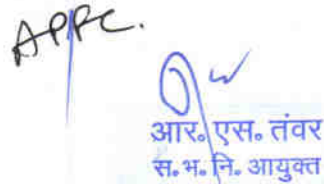 APFC.
आर. एस. तंवर
स. भ. नि. आयुक्त